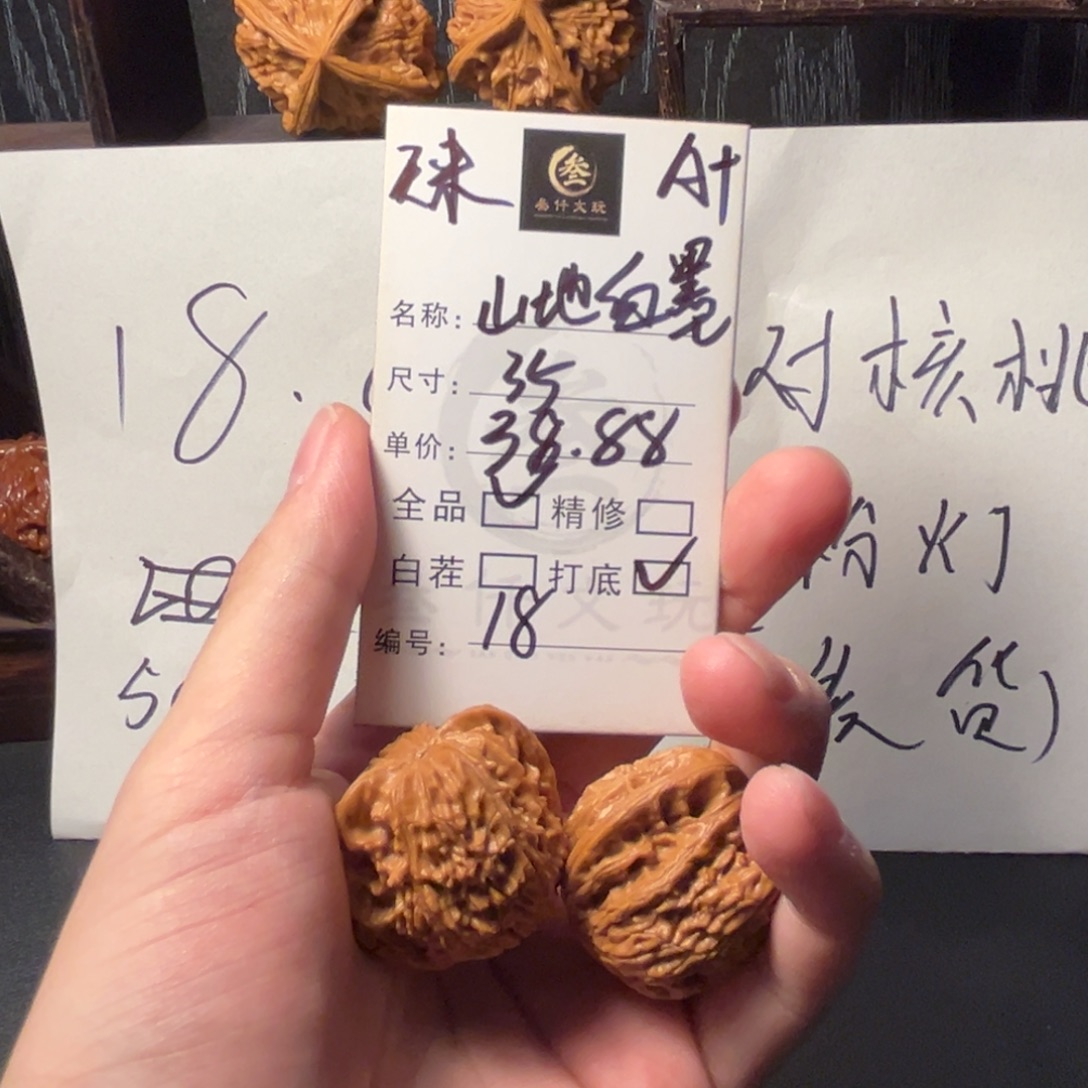 A+
叁
叁仟文玩
名称: 山地白墨
尺寸: 35
单价: 38.88
全品 精修
白茬 打底 ✓
编号: 18
18. 对核桃
粉灯
5 发货)